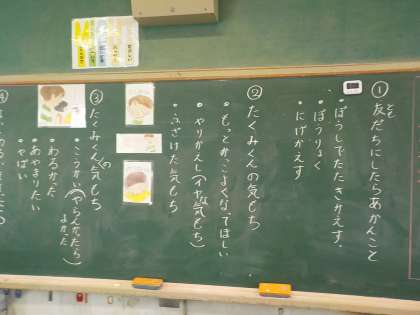 ① 友だちにしたらあかんこと
とも
・ぼうしでたたきかえす。
・ぼうりょく
・にげかえす
② たくみくんの気もち
・もっとかっこよくなってほしい
・やりかえし(イヤな気もち)
・ふざけた気もち
③ たくみくんの気もち
・こうかい(やらんかったらよかった)
・わるかった
・あやまりたい
・やばい
④